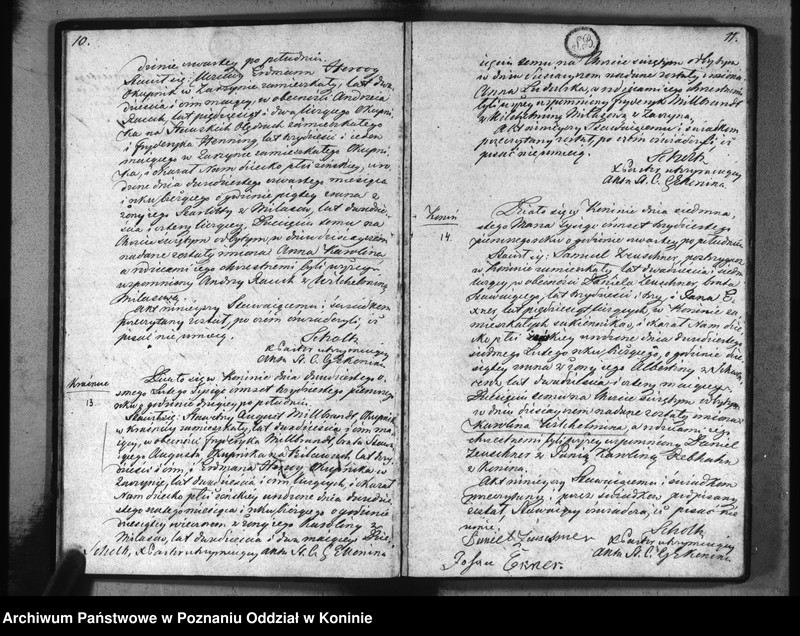 10.
dzinie czwartey po południu.
Stawił się: Erdmann Herzog
Okupnik w Zarzyne zamieszkały, lat dwa-
dzieścia i ośm maiący, w obecności Andrzeia
Rauch, lat pięćdziesiąt i dwa liczącego Okupni-
ka na Olędrach zamieszkałego
i Fryderyka Henning lat trzydzieści i ieden
maiącego w Zarzyne zamieszkałego Okupni-
ka, i okazał Nam dziecko płci żeńskiey, uro-
dzone dnia dwudziestego czwartego miesiąca
i roku bieżącego o godzinie piątey zrana z
żony iego Karlotty z Milasów, lat dwadzie-
ścia i cztery liczącey. Dziecięciu temu na
Chrzcie świętym odbytym w dniu dzisieyszym
nadane zostały imiona Anna Karolina
a rodzicami iego chrzestnemi byli wyżey
wspomniony Andrzey Rauch z Wilhelminą
Milasową.
Akt ninieyszy Stawaiącemu i świadkom
przeczytany został, po czém oświadczyli, iż
pisać nie umieią.
Scholtz
Pastor utrzymuiący
akta St. C. G. E. Konina
Krasnice
13.
Działo się w Koninie dnia dwudziestego ó-
smego Lutego tysiąc ośmset trzydziestego pierwszego
roku o godzinie drugiey po południu.
Stawił się: August Millbrandt, Okupnik
w Krasnicy zamieszkały, lat dwadzieścia i ośm ma-
iący, w obecności Fryderyka Millbrandt, brata Stawa-
iącego Augusta, Okupnika lat trzy-
dzieści i ośm, i Erdmana Herzog Okupnika w
Zarzynie, lat dwadzieścia i ośm liczących, i okazał
Nam dziecko płci żeńskiey urodzone dnia dwudzie-
stego miesiąca i roku bieżącego o godzinie
dziesiątey wieczorem z żony iego Karoliny z
Milasów, lat dwadzieścia i dwa maiącey. Dzie-
Scholtz, Pastor utrzymuiący akta St. C. G. E. Konina
11.
cięciu temu na Chrzcie świętym odbytym
w dniu dzisieyszym nadane zostały imiona
Anna Ludwika, a rodzicami iego chrzestnemi
byli wyżey wspomniony Fryderyk Millbrandt
z Wilhelminą Milasową z Zarzyna.
Akt ninieyszy Stawaiącemu i świadkom
przeczytany został, po czém oświadczyli iż
pisać nie umieią.
Scholtz
Pastor utrzymuiący
akta St. C. G. E. Konina.
Konin
14.
Działo się w Koninie dnia siedmna-
stego Marca tysiąc ośmset trzydziestego
pierwszego roku o godzinie czwartey po południu
Stawił się: Samuel Zeuschner, postrzygacz
w Koninie zamieszkały, lat dwadzieścia i siedm
liczący, w obecności Daniela Zeuschner, brata
Stawaiącego, lat trzydzieści i trzy, i Jana E-
xner, lat pięćdziesiąt liczących, w Koninie za-
mieszkałych sukienników, i okazał Nam dzie-
cko płci żeńskiey urodzone dnia dwudziestego
siódmego Lutego roku bieżącego, o godzinie dzie-
siątey zrana z żony iego Albertiny z
lat dwadzieścia i cztery maiącey.
Dziecięciu temu na Chrzcie świętym odbytym
w dniu dzisieyszym nadane zostały imiona
Karolina Wilhelmina, a rodzicami iego
chrzestnemi byli wyżey wspomniony Daniel
Zeuschner z Panną Karoliną Rebhahn
z Konina.
Akt ninieyszy Stawaiącemu i świadkom
przeczytany, przez świadków podpisany
został, Stawaiący oświadcza, iż pisać nie
umie.
Daniel Zeuschner
Johan Exner.
Scholtz
Pastor utrzymuiący
akta St. C. G. E. Konina.
Archiwum Państwowe w Poznaniu Oddział w Koninie